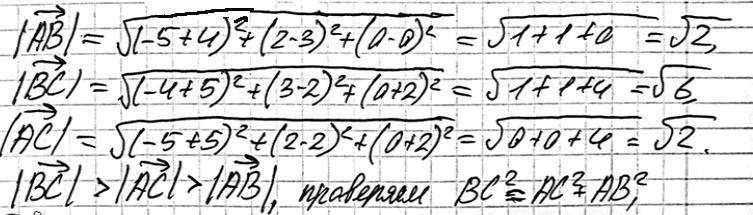 |AB| = √(-5+4)²+(2-3)²+(0-0)² = √1+1+0 = √2,
|BC| = √(-4+5)²+(3-2)²+(0+2)² = √1+1+4 = √6,
|AC| = √(-5+5)²+(2-2)²+(0+2)² = √0+0+4 = √2.
|BC| > |AC| > |AB|, проверяем BC² = AC² + AB²,